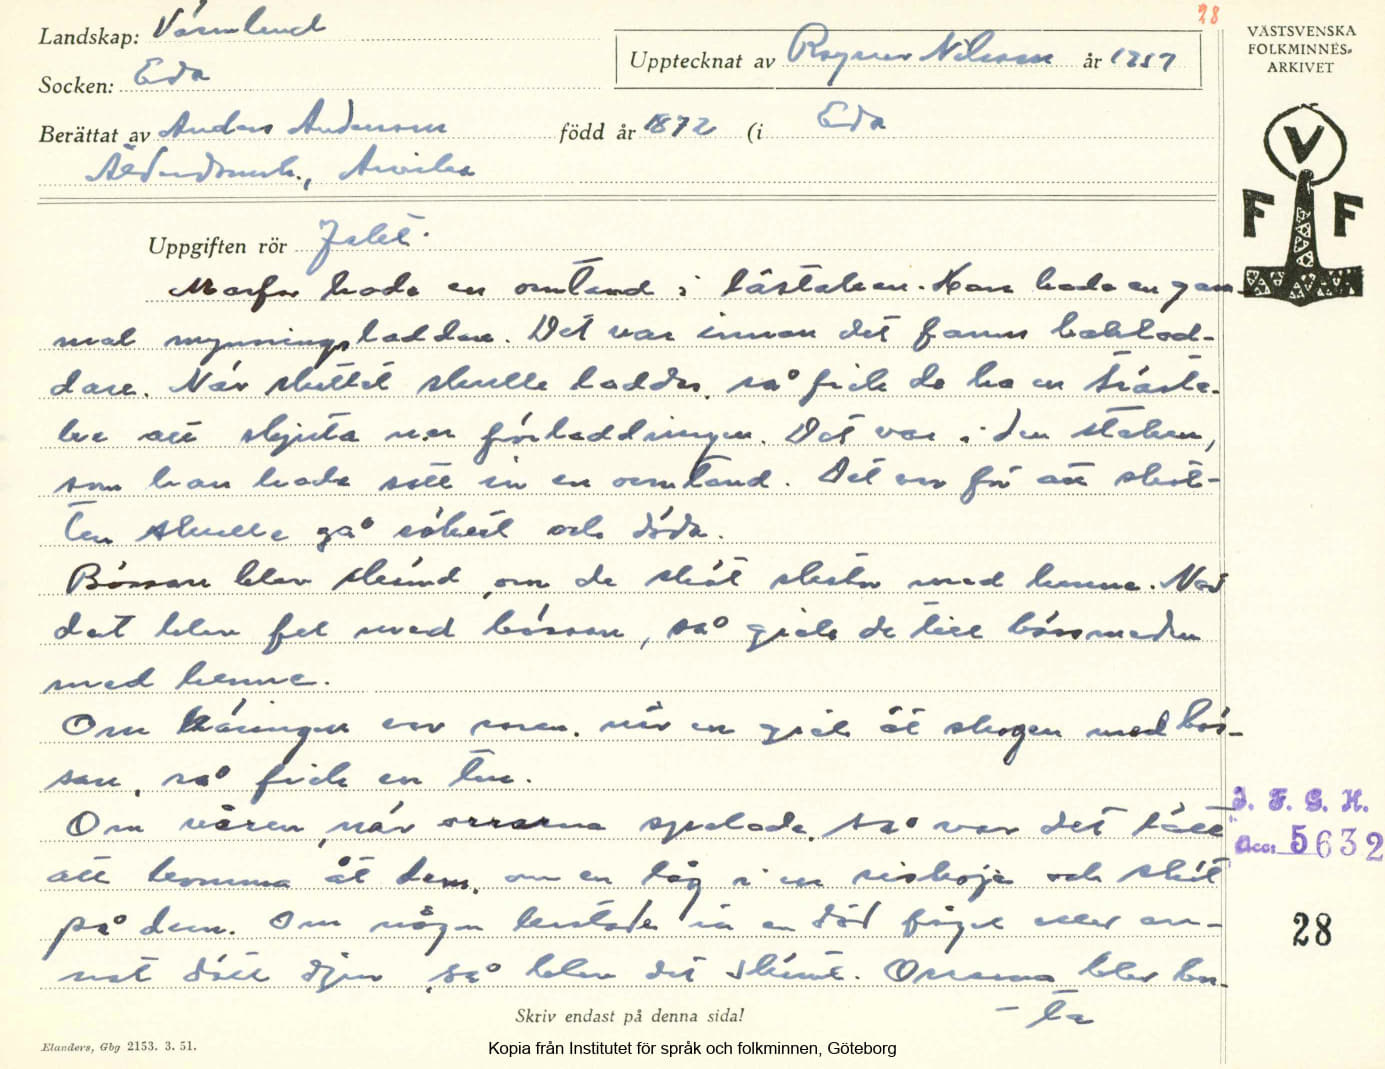 28
Landskap: Värmland
Socken: Eda
Upptecknat av Ragnar Nilsson år 1957
VÄSTSVENSKA
FOLKMINNES-
ARKIVET
Berättat av Anders Andersson född år 1872 (i Eda
Ålderdomsh., Arvika
V
F F
Uppgiften rör Jakt.
Morfar hade en ormtand i laddstaken. Han hade en gam-
mal mynningsladdare. Det var innan det fanns bakladd-
dare. När skottet skulle laddas, så fick de ha en trästa-
ke att skjuta ner förladdningen. Det var i den staken,
som han hade satt in en ormtand. Det var för att skot-
ten skulle gå säkert och döda.
Bössan blev skämd, om de sköt skator med henne. När
det blev fel med bössan, så gick de till bössmeden
med henne.
Om käringen var snen, när en gick åt skogen med bös-
san, så fick en tur.
Om våren, när orrarna spelade, så var det lätt
att komma åt dem, om en låg i en riskoja och sköt
på dem. Om någon kastade in en död fågel eller an-
nat dött djur, så blev det skämt. Orrarna blev bor-
- ta
J. F. G. H.
Acc: 5632
28
Skriv endast på denna sida!
Elanders, Gbg 2153. 3. 51.
Kopia från Institutet för språk och folkminnen, Göteborg